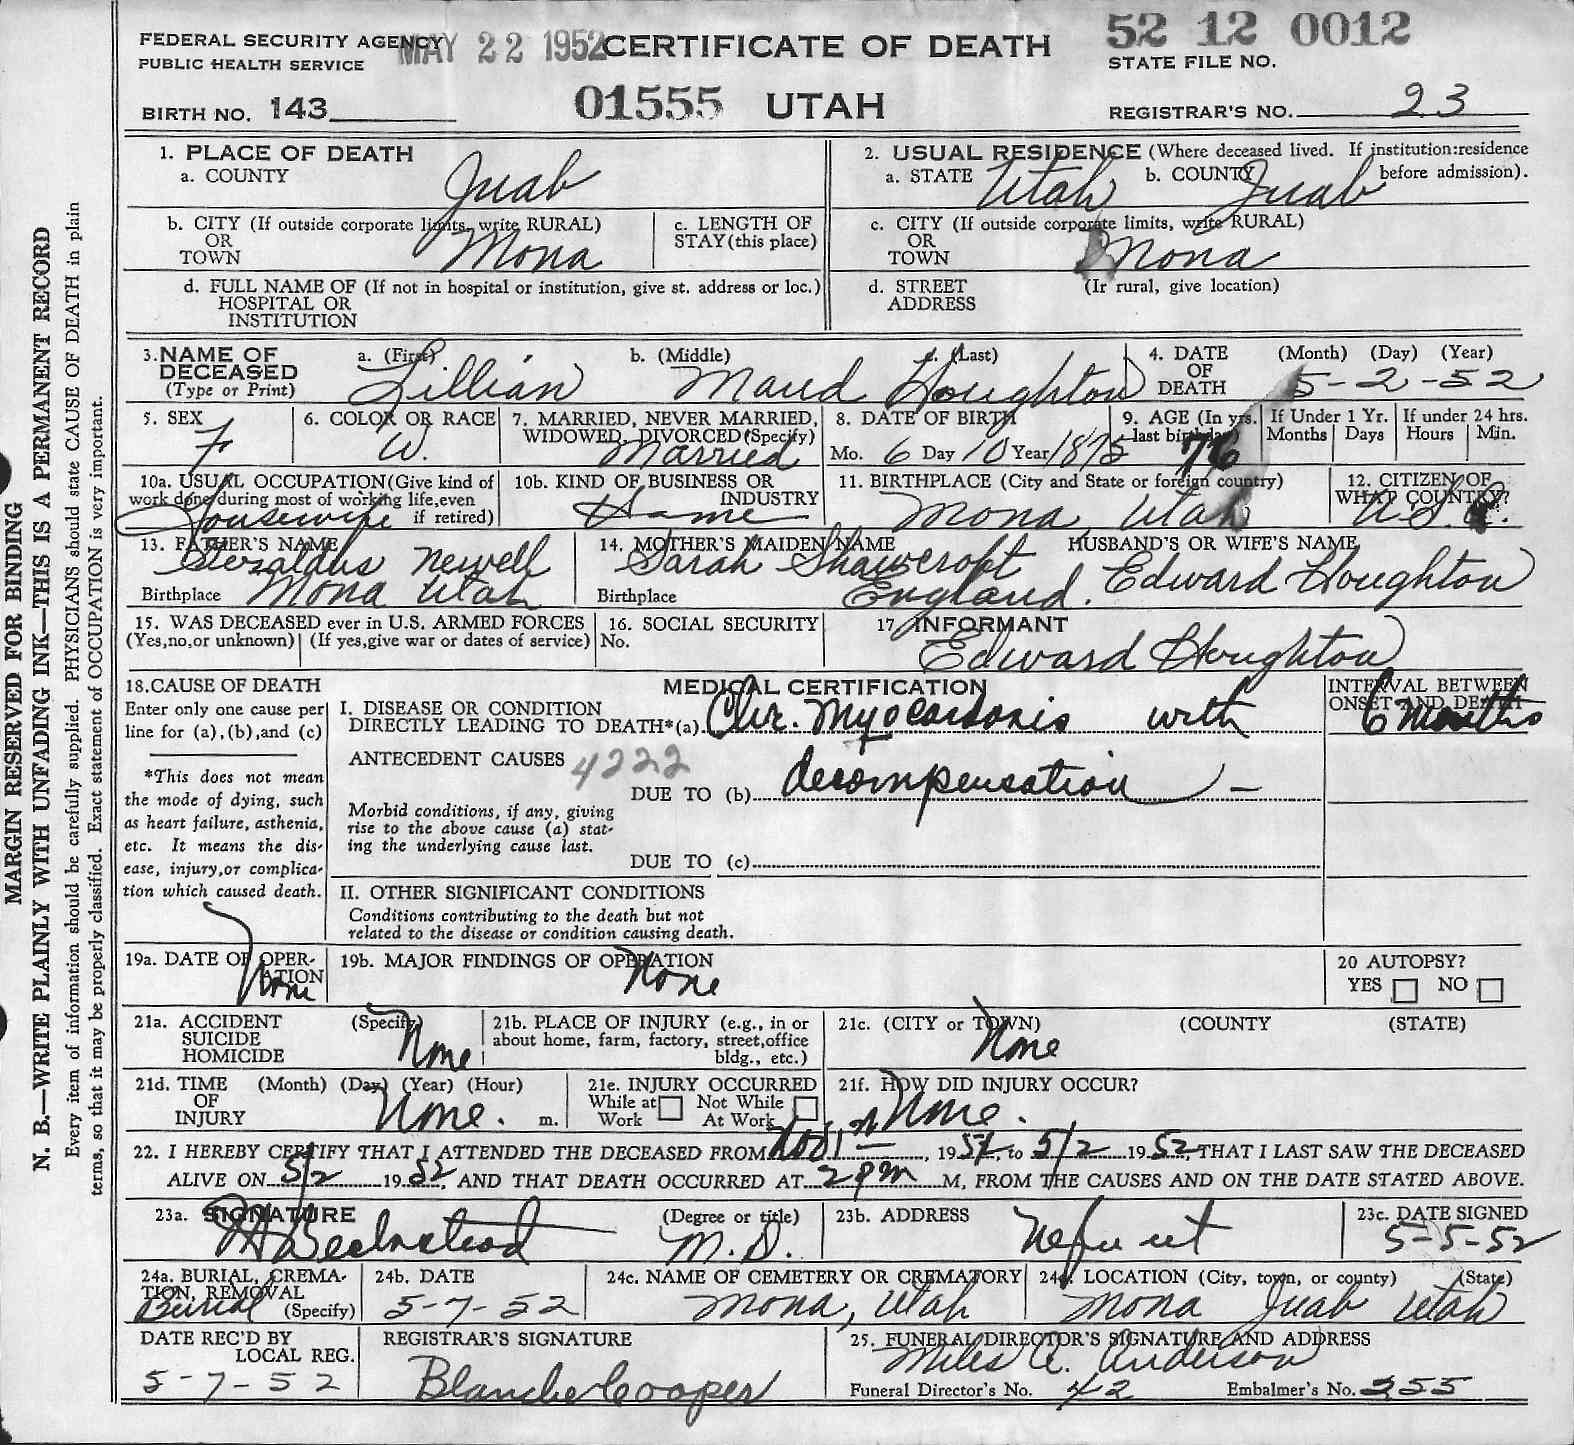 FEDERAL SECURITY AGENCY MAY 22 1952 CERTIFICATE OF DEATH 52 12 0012
PUBLIC HEALTH SERVICE STATE FILE NO.
BIRTH NO. 143 01555 UTAH REGISTRAR'S NO. 23
1. PLACE OF DEATH 2. USUAL RESIDENCE (Where deceased lived. If institution:residence
a. COUNTY Juab a. STATE Utah b. COUNTY Juab before admission).
b. CITY (If outside corporate limits, write RURAL) c. LENGTH OF c. CITY (If outside corporate limits, write RURAL)
OR Mona STAY (this place) OR Mona
TOWN TOWN
d. FULL NAME OF (If not in hospital or institution, give st. address or loc.) d. STREET (If rural, give location)
HOSPITAL OR ADDRESS
INSTITUTION
3. NAME OF a. (First) b. (Middle) c. (Last) 4. DATE (Month) (Day) (Year)
DECEASED Lillian Maud Houghton OF 5-2-52
(Type or Print) DEATH
5. SEX 6. COLOR OR RACE 7. MARRIED, NEVER MARRIED, 8. DATE OF BIRTH 9. AGE (In yrs. If Under 1 Yr. If under 24 hrs.
F W. WIDOWED, DIVORCED (Specify) last birthday) Months Days Hours Min.
Married Mo. 6 Day 10 Year 1875 76
10a. USUAL OCCUPATION (Give kind of 10b. KIND OF BUSINESS OR 11. BIRTHPLACE (City and State or foreign country) 12. CITIZEN OF
work done during most of working life,even INDUSTRY WHAT COUNTRY?
Housewife if retired) Home Mona, Utah U.S.A.
13. FATHER'S NAME 14. MOTHER'S MAIDEN NAME HUSBAND'S OR WIFE'S NAME
Newell Sarah Shawcroft Edward Houghton
Birthplace Mona Utah Birthplace England.
15. WAS DECEASED ever in U.S. ARMED FORCES 16. SOCIAL SECURITY 17. INFORMANT
(Yes,no,or unknown) (If yes,give war or dates of service) No. Edward Houghton
18. CAUSE OF DEATH MEDICAL CERTIFICATION INTERVAL BETWEEN
Enter only one cause per I. DISEASE OR CONDITION ONSET AND DEATH
line for (a),(b),and (c) DIRECTLY LEADING TO DEATH*(a) Chr. Myocardosis with 6 months
ANTECEDENT CAUSES 4222
*This does not mean DUE TO (b) decompensation –
the mode of dying, such Morbid conditions, if any, giving
as heart failure, asthenia, rise to the above cause (a) stat-
etc. It means the dis- ing the underlying cause last.
ease, injury,or complica- DUE TO (c)
tion which caused death. II. OTHER SIGNIFICANT CONDITIONS
Conditions contributing to the death but not
related to the disease or condition causing death.
19a. DATE OF OPER- 19b. MAJOR FINDINGS OF OPERATION 20 AUTOPSY?
ATION None None YES NO
21a. ACCIDENT (Specify) 21b. PLACE OF INJURY (e.g., in or 21c. (CITY or TOWN) (COUNTY (STATE)
SUICIDE None about home, farm, factory, street,office None
HOMICIDE bldg., etc.)
21d. TIME (Month) (Day) (Year) (Hour) 21e. INJURY OCCURRED 21f. HOW DID INJURY OCCUR?
OF None. While at Not While None.
INJURY m. Work At Work
22. I HEREBY CERTIFY THAT I ATTENDED THE DECEASED FROM , 1951, to 5/2 1952, THAT I LAST SAW THE DECEASED
ALIVE ON 5/2 1952, AND THAT DEATH OCCURRED AT 2 PM M, FROM THE CAUSES AND ON THE DATE STATED ABOVE.
23a. SIGNATURE (Degree or title) 23b. ADDRESS 23c. DATE SIGNED
M.D. 5-5-52
24a. BURIAL, CREMA- 24b. DATE 24c. NAME OF CEMETERY OR CREMATORY 24d. LOCATION (City, town, or county) (State)
TION, REMOVAL
Burial (Specify) 5-7-52 Mona, Utah Mona Juab Utah
DATE REC'D BY REGISTRAR'S SIGNATURE 25. FUNERAL DIRECTOR'S SIGNATURE AND ADDRESS
LOCAL REG. Miles A. Anderson
5-7-52 Blanche Cooper Funeral Director's No. 42 Embalmer's No. 255
MARGIN RESERVED FOR BINDING
N. B.—WRITE PLAINLY WITH UNFADING INK—THIS IS A PERMANENT RECORD
Every item of information should be carefully supplied. PHYSICIANS should state CAUSE OF DEATH in plain
terms, so that it may be properly classified. Exact statement of OCCUPATION is very important.